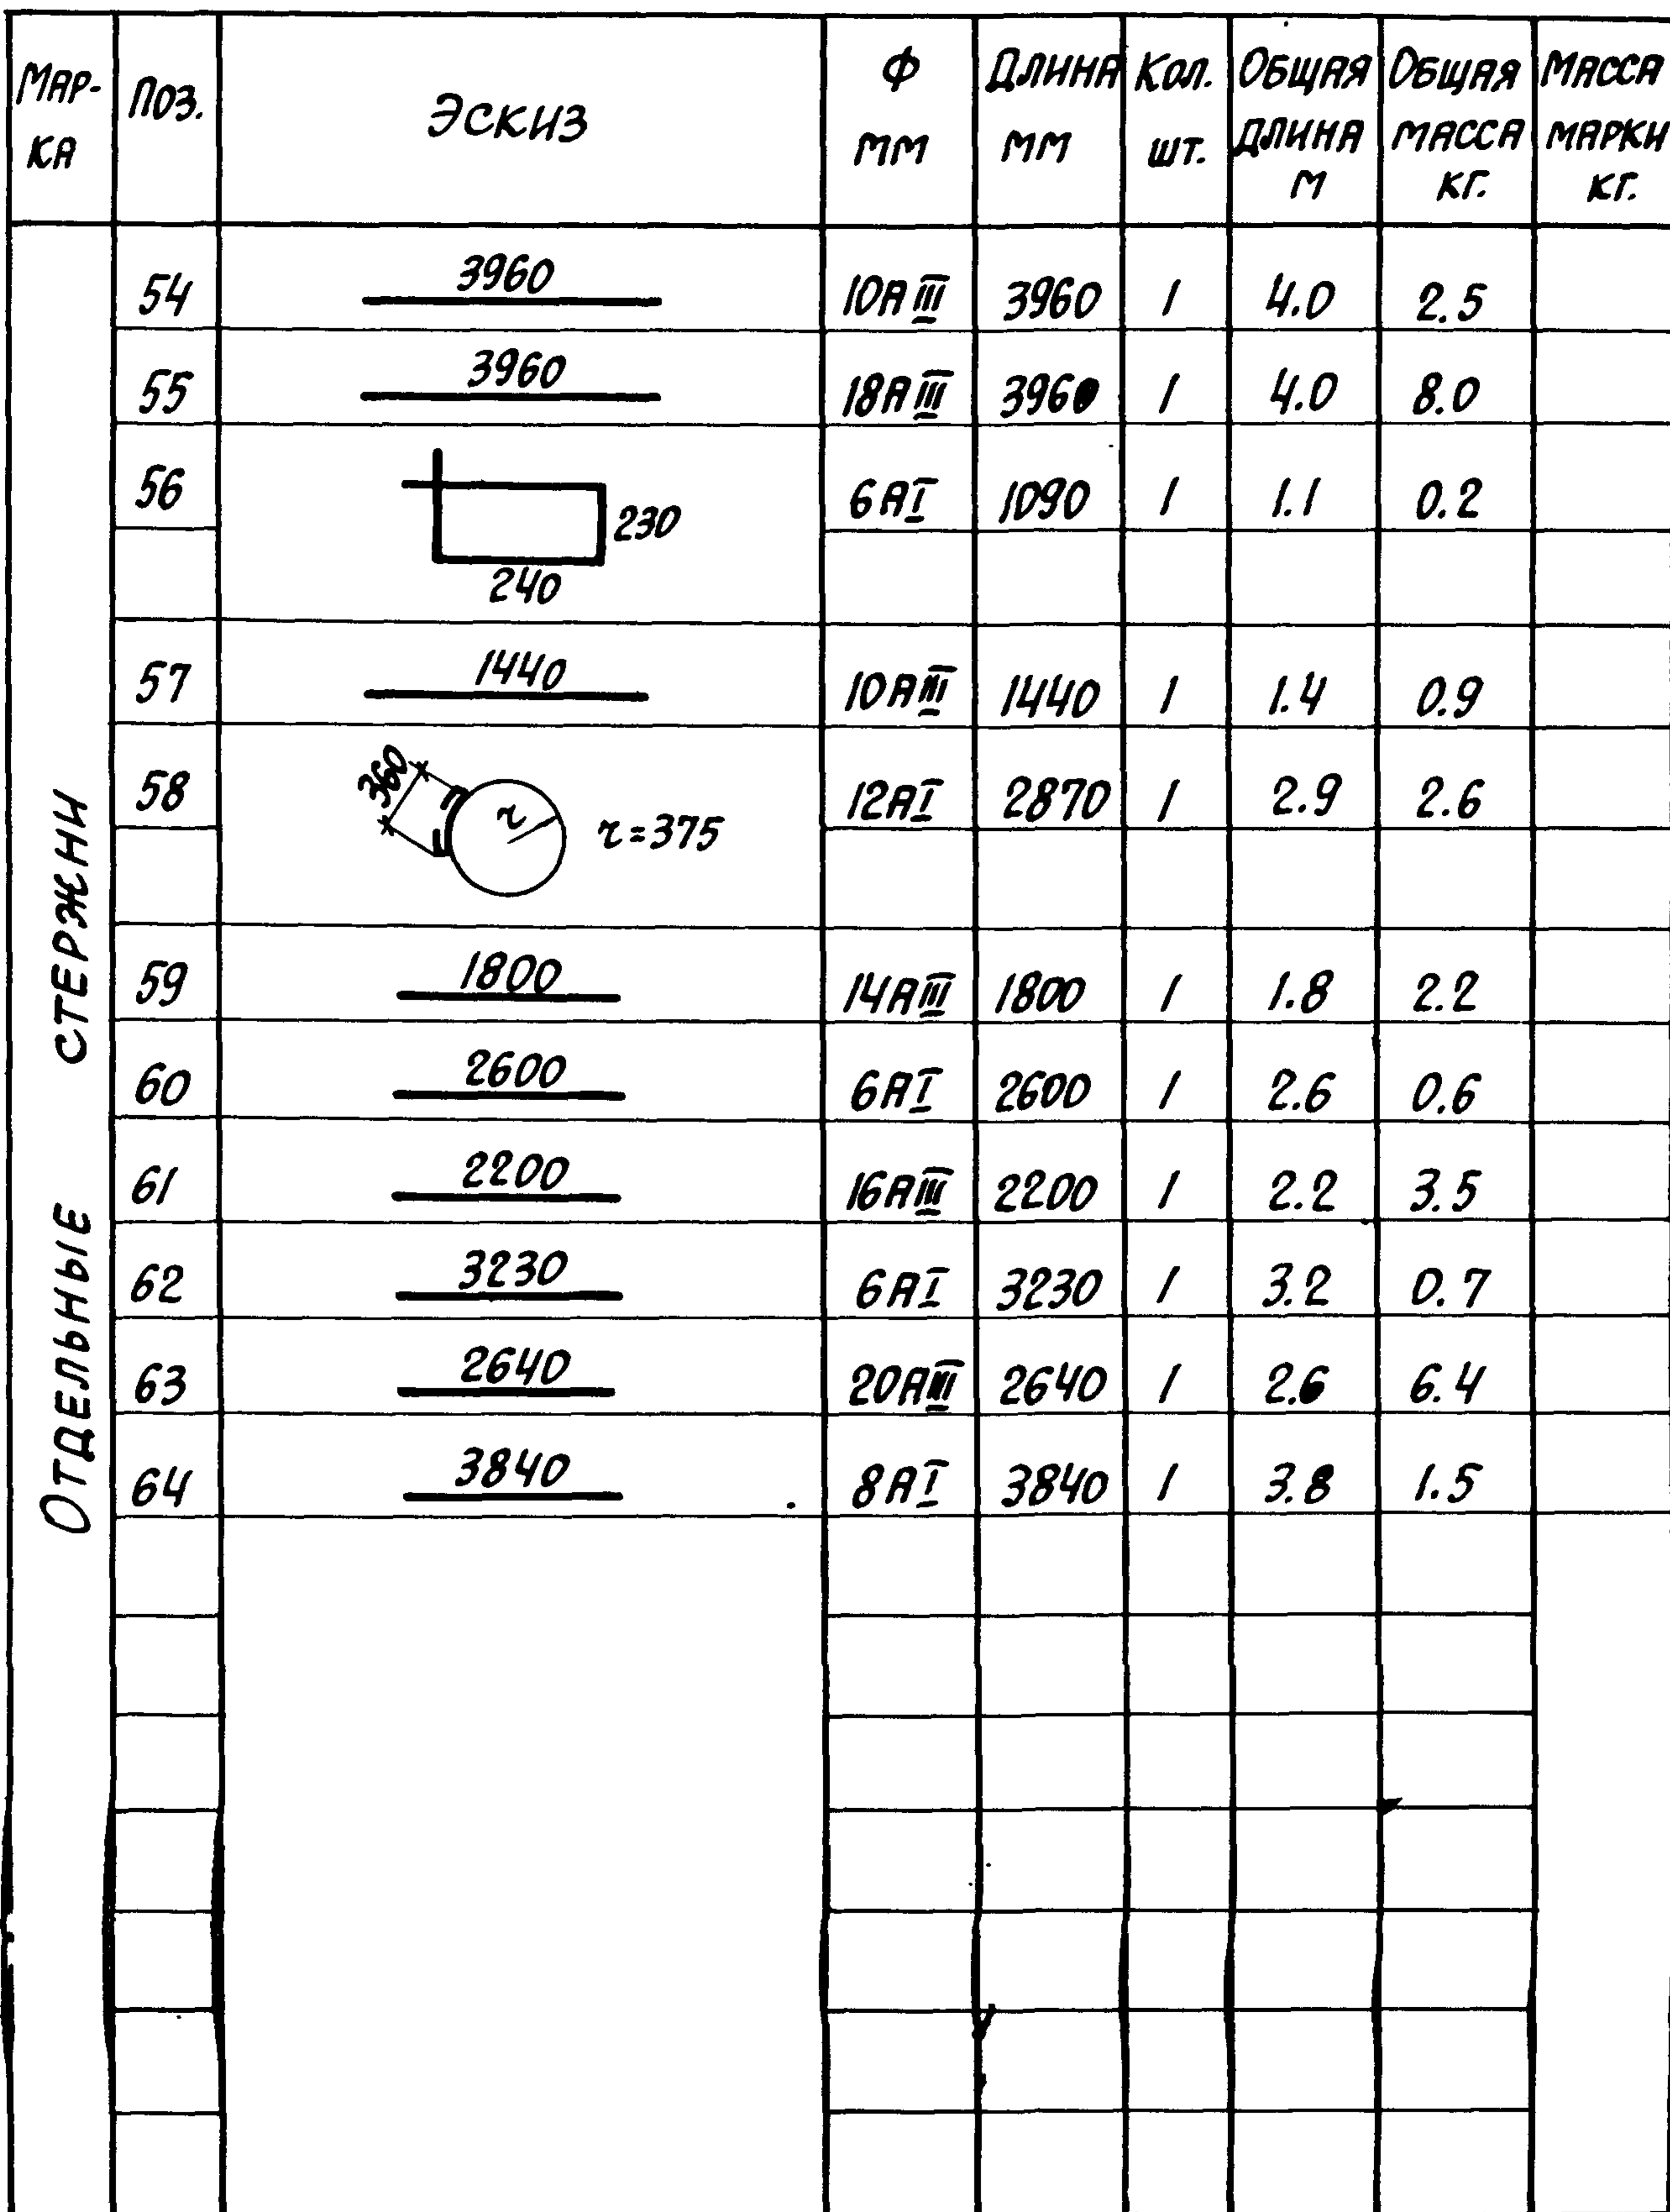 МАР-КА ПОЗ. ЭСКИЗ Ф ММ ДЛИНА ММ Кол. шт. ОБЩАЯ ДЛИНА М ОБЩАЯ МАССА КГ. МАССА МАРКИ КГ.
ОТДЕЛЬНЫЕ СТЕРЖНИ
54 3960 10АIII 3960 1 4.0 2.5
55 3960 18АIII 3960 1 4.0 8.0
56 230 240 6АI 1090 1 1.1 0.2
57 1440 10АIII 1440 1 1.4 0.9
58 360 r r=375 12АI 2870 1 2.9 2.6
59 1800 14АIII 1800 1 1.8 2.2
60 2600 6АI 2600 1 2.6 0.6
61 2200 16АIII 2200 1 2.2 3.5
62 3230 6АI 3230 1 3.2 0.7
63 2640 20АIII 2640 1 2.6 6.4
64 3840 8АI 3840 1 3.8 1.5